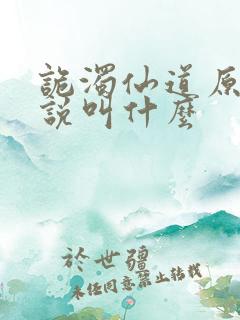 詭濁仙道原
說叫什麼
於世疆
未經同意禁止轉載